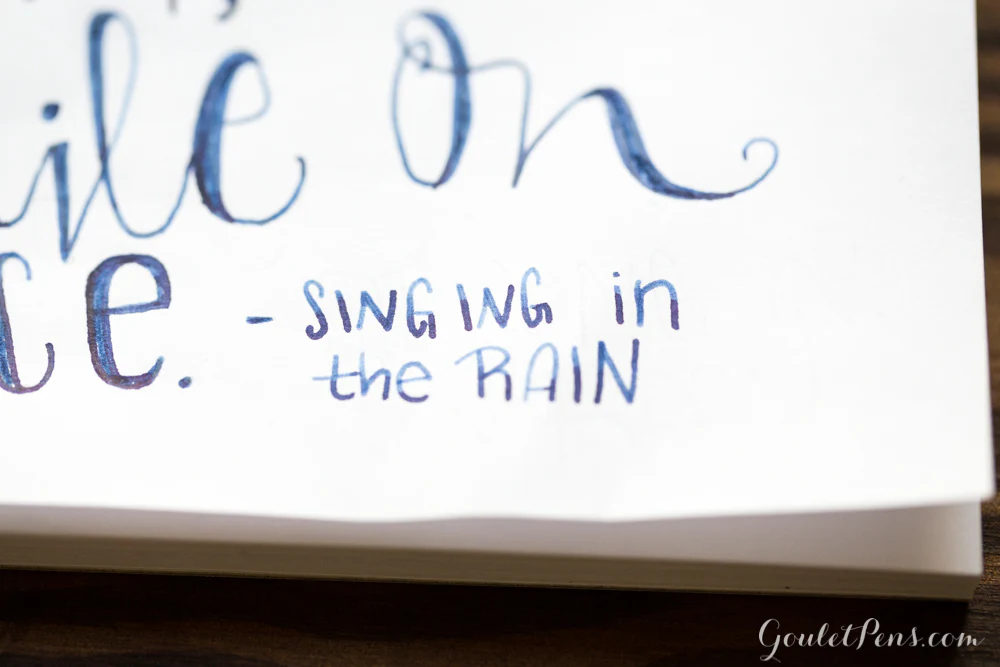 ile on
ce. - SINGING in
the RAIN
GouletPens.com